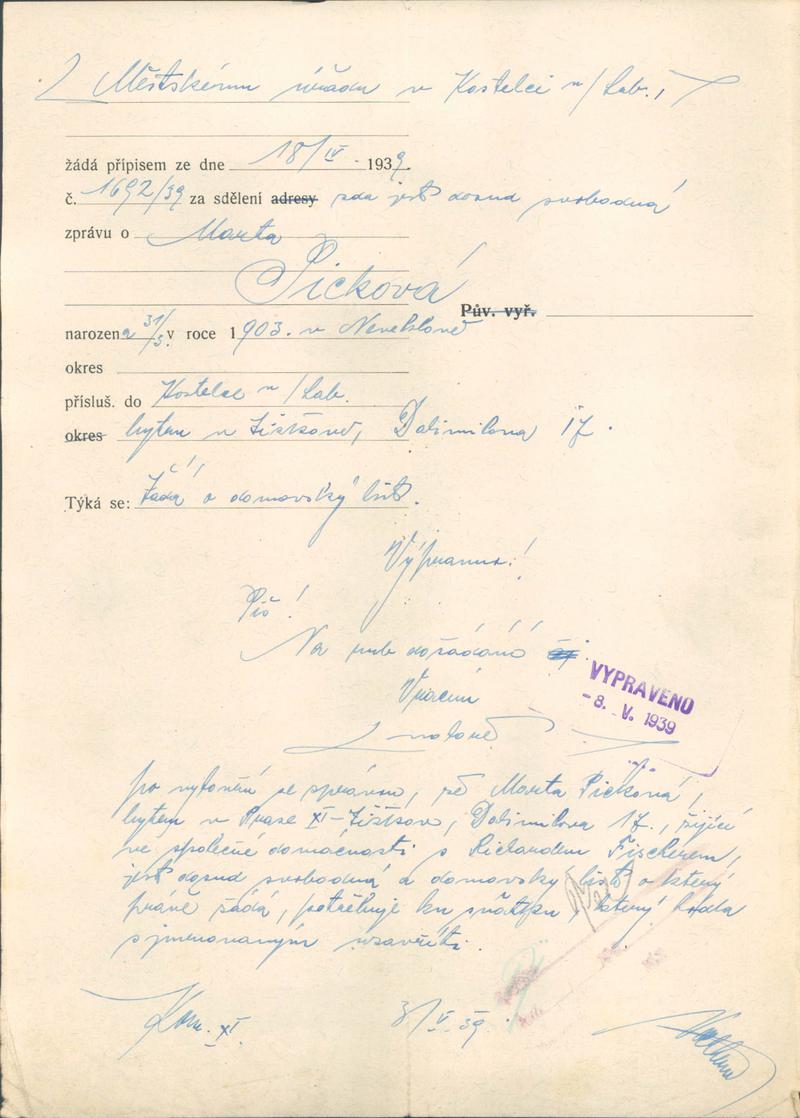 Městskému úřadu v Kostelci n/Lab.,
žádá přípisem ze dne 18/IV. 1939.
č. 1692/39 za sdělení adresy zda jest dosud svobodná
zprávu o Marta
Picková
Pův. vyř.
narozena 31/3. v roce 1903. v Neveklově
okres
přísluš. do Kostelce n/Lab.
okres bytem v Žižkově, Dalimilova 17.
Týká se: Žádá o domovský list.
Piš!
Na rub dožádání
Vrácení
VYPRAVENO
- 8. V. 1939
po vyšetření se zprávou, že Marta Picková,
bytem v Praze XI-Žižkov, Dalimilova 17., žijící
ve společné domácnosti s Richardem Fischerem,
jest dosud svobodná a domovský list o který
právě žádá, potřebuje ku sňatku, který hodlá
s jmenovaným uzavříti.
Kom. XI. 3/V. 39.